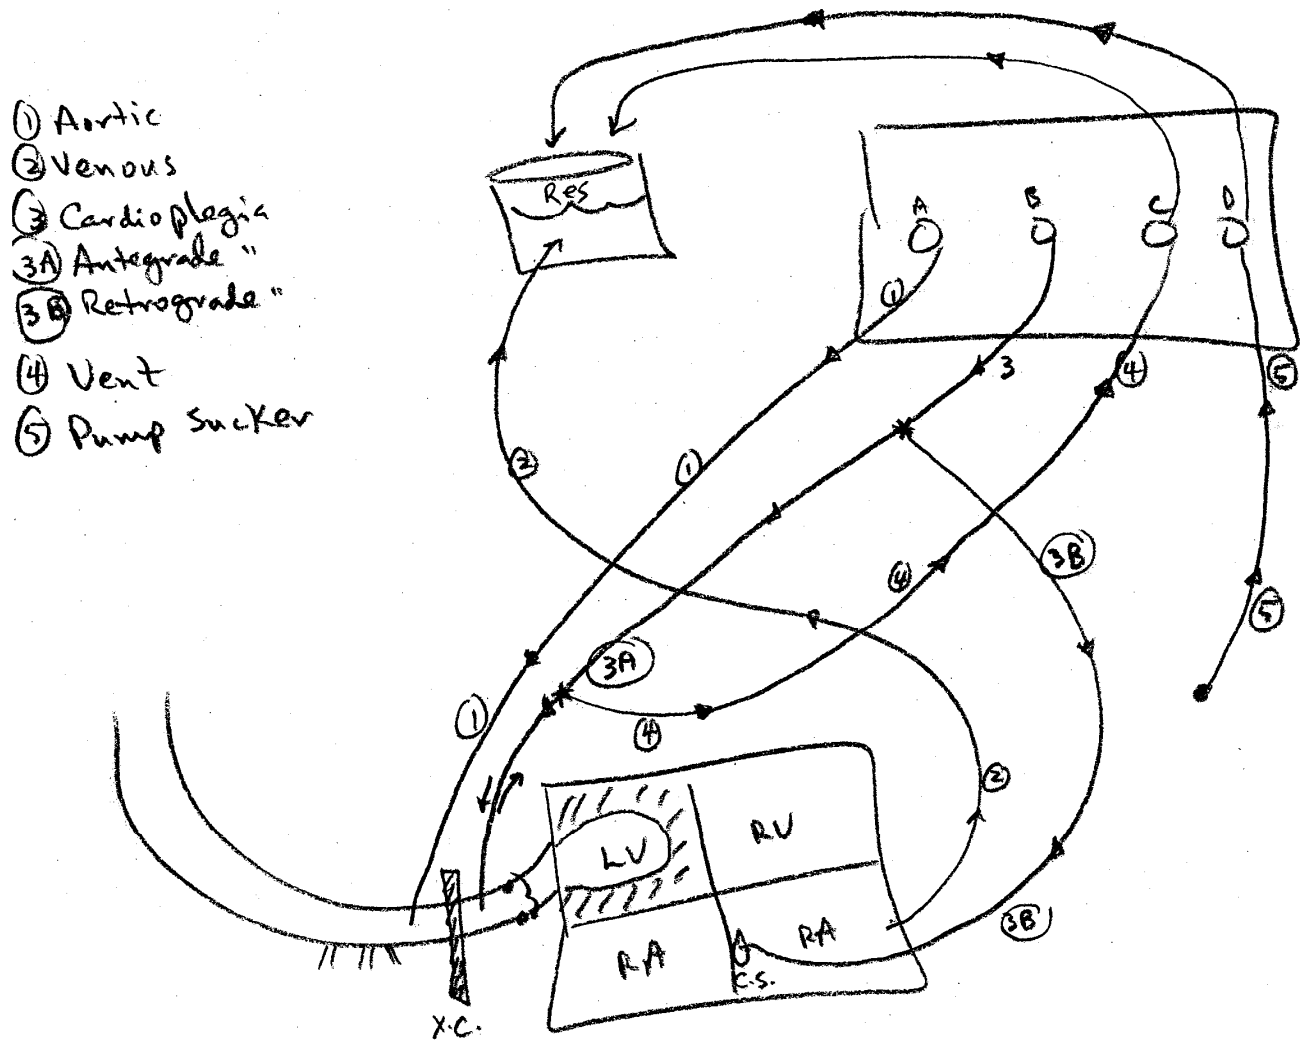 ① Aortic
② Venous
③ Cardioplegia
3A Antegrade "
3B Retrograde "
④ Vent
⑤ Pump Sucker
Res
A B C D
①
3
④
⑤
①
②
3B
④
⑤
3A
①
④
②
RV
LV
3B
RA
RA
C.S.
X.C.